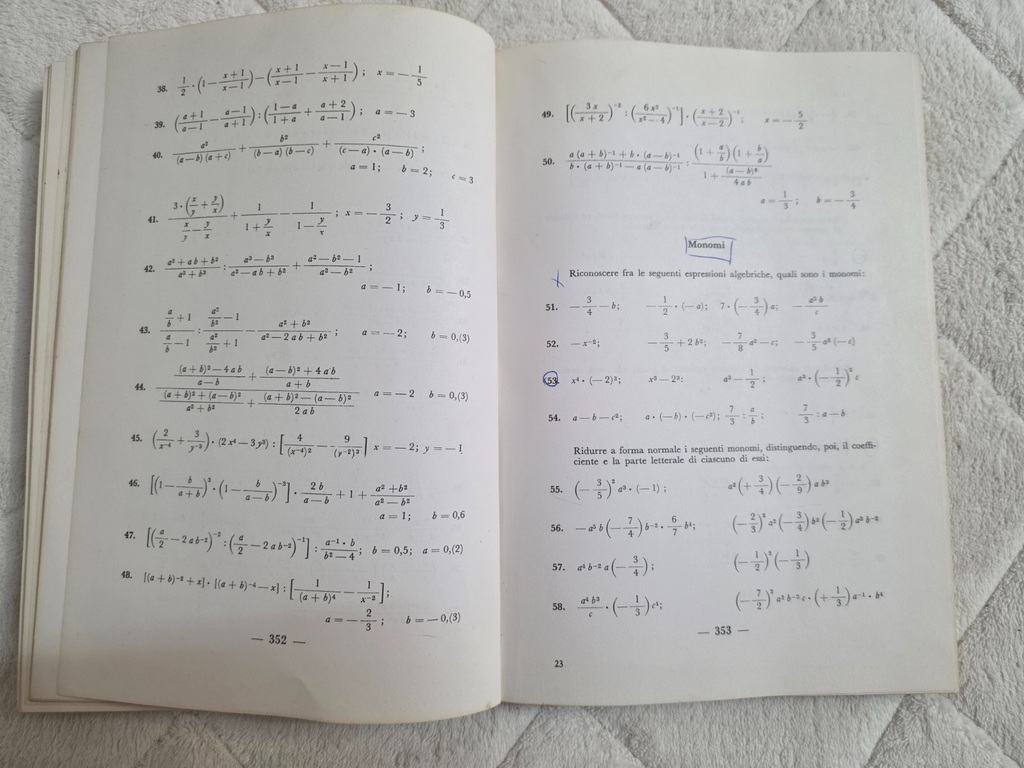 38. 1/2 · (1 − x+1/x−1) − (x+1/x−1 − x−1/x+1) ; x = − 1/5
39. (a+1/a−1 − a−1/a+1) : (1−a/1+a + a+2/a−1) ; a = − 3
40. a²/(a−b)(a+c) + b²/(b−a)(b−c) + c²/(c−a)·(a−b) ;
a = 1; b = 2; c = 3
41. 3·(x/y + y/x)/(x/y − y/x) + 1/(1 + y/x) − 1/(1 − y/x) ; x = − 3/2 ; y = 1/3
42. a²+ab+b²/a³+b³ : a³−b³/a²−ab+b² + a²−b²−1/a²−b² ;
a = − 1; b = − 0,5
43. (a/b + 1)/(a/b − 1) : (a²/b² − 1)/(a²/b² + 1) − a²+b²/a²−2ab+b² ; a = − 2; b = 0,(3)
44. ((a+b)²−4ab/a−b + (a−b)²+4ab/a+b)/((a+b)²+(a−b)²/a²+b² + (a+b)²−(a−b)²/2ab) a = − 2 b = 0,(3)
45. (2/x⁻⁴ + 3/y⁻³) · (2x⁴ − 3y³) : [4/(x⁻⁴)² − 9/(y⁻²)³] x = − 2; y = − 1
46. [(1 − b/a+b)² · (1 − b/a−b)⁻³] · 2b/a+b + 1 + a²+b²/a²−b²
a = 1; b = 0,6
47. [(a/2 − 2ab⁻²)⁻² : (a/2 − 2ab⁻²)⁻¹] : a⁻¹·b/b²−4 ; b = 0,5; a = 0,(2)
48. [(a+b)⁻² + x] · [(a+b)⁻⁴ − x] : [1/(a+b)⁴ − 1/x⁻²] ;
a = − 2/3 ; b = − 0,(3)
— 352 —
49. [(3x/x+2)⁻² : (6x²/x²−4)⁻¹] · (x+2/x−2)⁻¹ ; x = − 5/2
50. a(a+b)⁻¹+b·(a−b)⁻¹/b·(a+b)⁻¹−a(a−b)⁻¹ : (1 + a/b)(1 + b/a)/(1 + (a−b)²/4ab)
a = 1/3 ; b = − 3/4
Monomi
Riconoscere fra le seguenti espressioni algebriche, quali sono i monomi:
51. − 3/4 − b; − 1/2 · (− a); 7 · (− 3/4) a; − a³b/c
52. − x⁻²; − 3/5 + 2b²; − 7/8 a² − c; − 3/5 a³ (− c)
53. x⁴ · (− 2)³; x³ − 2³: a³ − 1/2 ; a³ · (− 1/2)² c
54. a − b − c²; a · (− b) · (− c²); 7/3 : a/b ; 7/3 : a − b
Ridurre a forma normale i seguenti monomi, distinguendo, poi, il coeffi-
ciente e la parte letterale di ciascuno di essi:
55. (− 3/5)² a³ · (− 1) ; a² (+ 3/4) (− 2/9) a b³
56. − a⁵ b (− 7/4) b⁻² · 6/7 b⁴; (− 2/3)² a³ (− 3/4) b² (− 1/2) a² b⁻²
57. a⁴ b⁻² a (− 3/4) ; (− 1/2)² (− 1/3)
58. a⁴b³/c · (− 1/3) c⁴; (− 7/2)² a² b⁻³ c · (+ 1/3) a⁻¹ · b⁴
— 353 —
23